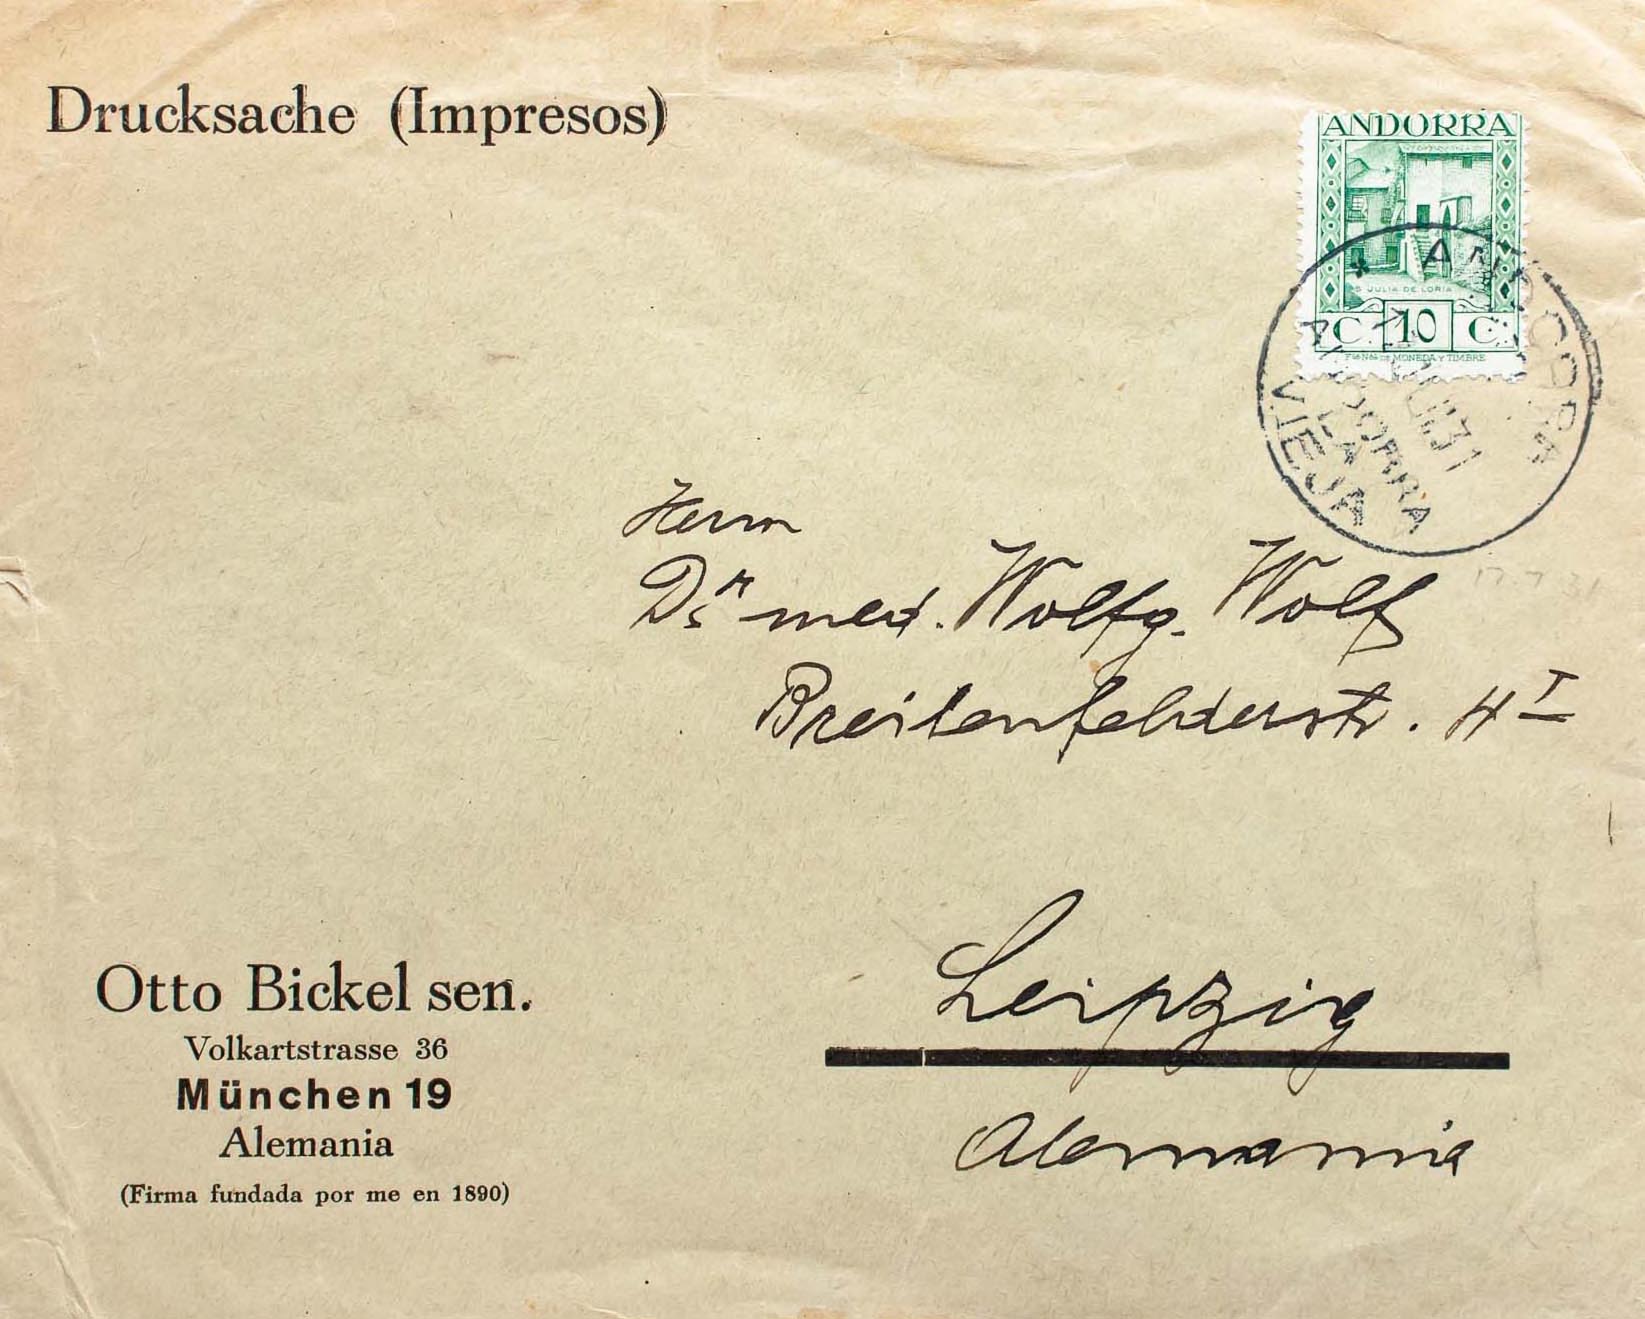 Drucksache (Impresos)
ANDORRA
S JULIA DE LORIA
C. 10 C.
Fca Nal DE MONEDA Y TIMBRE
ANDORRA
ANDORRA
LA
VIEJA
Herrn
Dr. med. Wolfg. Wolf
Breitenfelderstr. 4 I
Leipzig
Alemania
Otto Bickel sen.
Volkartstrasse 36
München 19
Alemania
(Firma fundada por me en 1890)